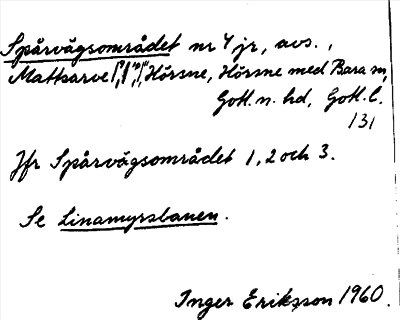 Spårvägsområdet nr 4 jr, avs.,
Mattsarve 1:1, Hörsne, Hörsne med Bara sn,
Gotl. n. hd, Gotl. l.
131
Jfr Spårvägsområdet 1, 2 och 3.
Se Linamyrsbanen.
Inger Eriksson 1960.